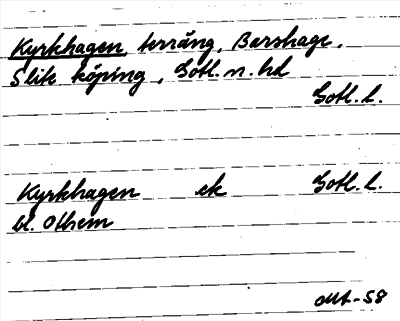 Kyrkhagen, terräng, Barshage,
Slite köping, Gotl. n. hd
Gotl. l.
Kyrkhagen ek Gotl. l.
bl. Othem